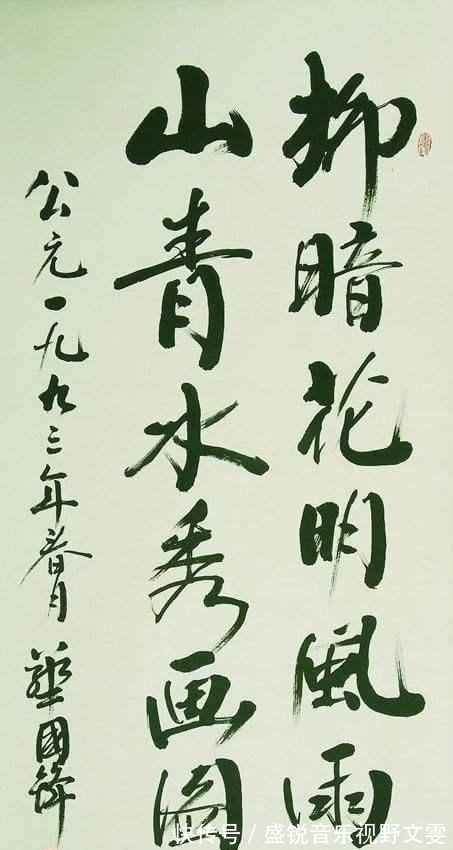 柳暗花明風雨
山青水秀画图
公元一九九三年春月
華國鋒
快传号/盛锐音乐视野文雯